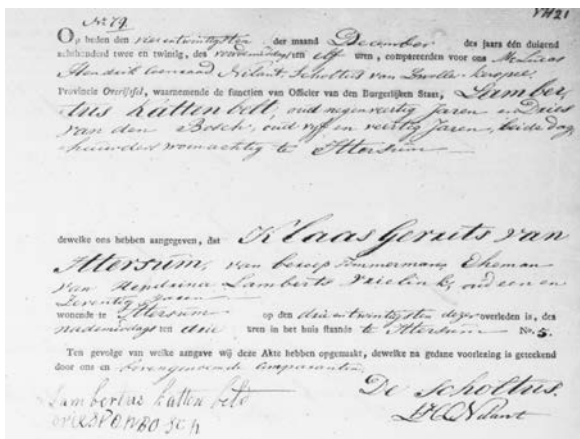 No. 79.
VH21
Op heden den vierentwintigsten der maand December des jaars één duizend
achthonderd twee en twintig, des voordemiddags ten elf uren, compareerden voor ons Mr. Lucas
Hendrik Coenraad Nilant, Scholtus van Zwollerkerspel,
Provincie Overijssel, waarnemende de functien van Officier van den Burgerlijken Staat, Lamber
tus Kattenbelt, oud negenveertig Jaren en Dries
van den Bosch, oud vijf en veertig Jaren, beide dag
huurders woonachtig te Ittersum
dewelke ons hebben aangegeven, dat Klaas Gerrits van
Ittersum, van beroep Timmerman, Eheman
van Hendrina Lamberts Vrielink, oud een en
Zeventig Jaren
wonende te Ittersum op den drieentwintigsten dezer overleden is, des
nademiddags ten drie uren in het huis staande te Ittersum No. 5.
Ten gevolge van welke aangave wij deze Akte hebben opgemaakt, dewelke na gedane voorlezing is geteekend
door ons en bovengenoemde Comparanten.
Lambertus Katten belt
De Scholtus.
LHCNilant